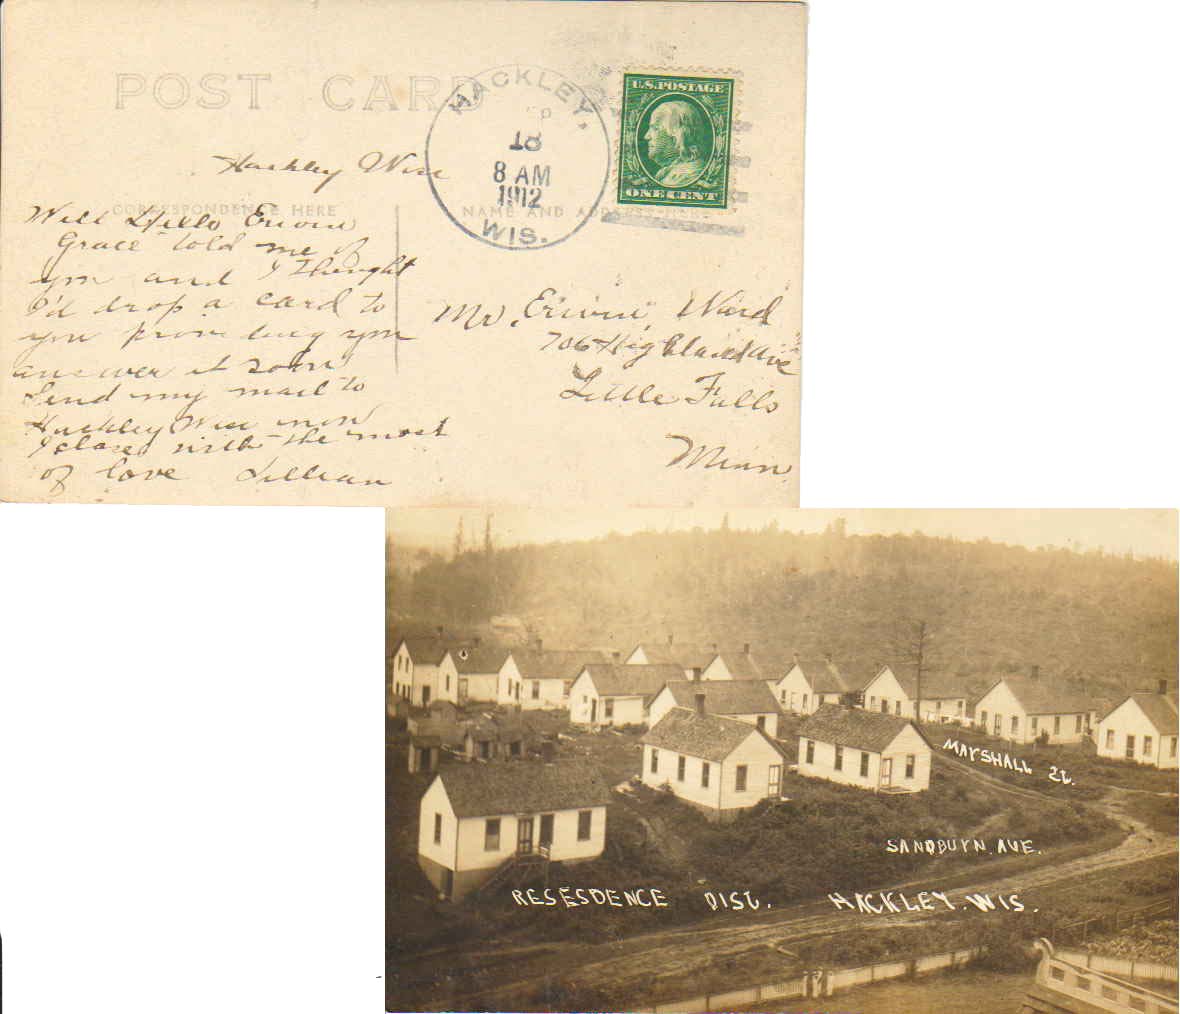 POST CARD
HACKLEY,
18
8 AM
1912
WIS.
U.S. POSTAGE
ONE CENT
Hackley Wis
CORRESPONDENCE HERE
NAME AND ADDRESS HERE
Well Hello Erwin
Grace told me of
you and I thought
I'd drop a card to
you providing you
answer it soon
Send my mail to
Hackley Wis now
I close with the most
of love Lillian
Mr. Erwin Ward
706 Highland Ave
Little Falls
Minn
MARSHALL St.
SANDBURN. AVE.
RESESDENCE DIST. HACKLEY. WIS.